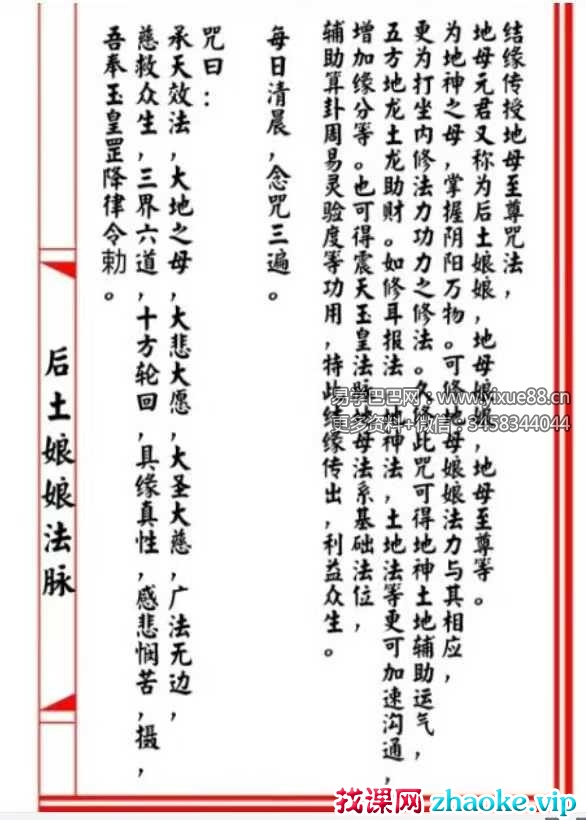 结缘传授地母至尊咒法，
地母元君又称为后土娘娘，地母娘娘，地母至尊等。
为地神之母，掌握阴阳万物。可修地母娘娘法力与其相应，
更为打坐内修法力功力之修法。久修此咒可得地神土地辅助运气，
五方地龙土龙助财。如修耳报法，地神法，土地法等更可加速沟通，
增加缘分等。也可得震天玉皇法脉地母法系基础法位，
辅助算卦周易灵验度等功用，特此结缘传出，利益众生。
每日清晨，念咒三遍。
咒曰：
承天效法，大地之母，大悲大愿，大圣大慈，广法无边，
慈救众生，三界六道，十方轮回，具缘真性，感悲悯苦，摄，
吾奉玉皇罡降律令勅。
后土娘娘法脉
易学巴巴网：www.yixue88.cn
更多资料+微信：3458344044
找课网zhaoke.vip